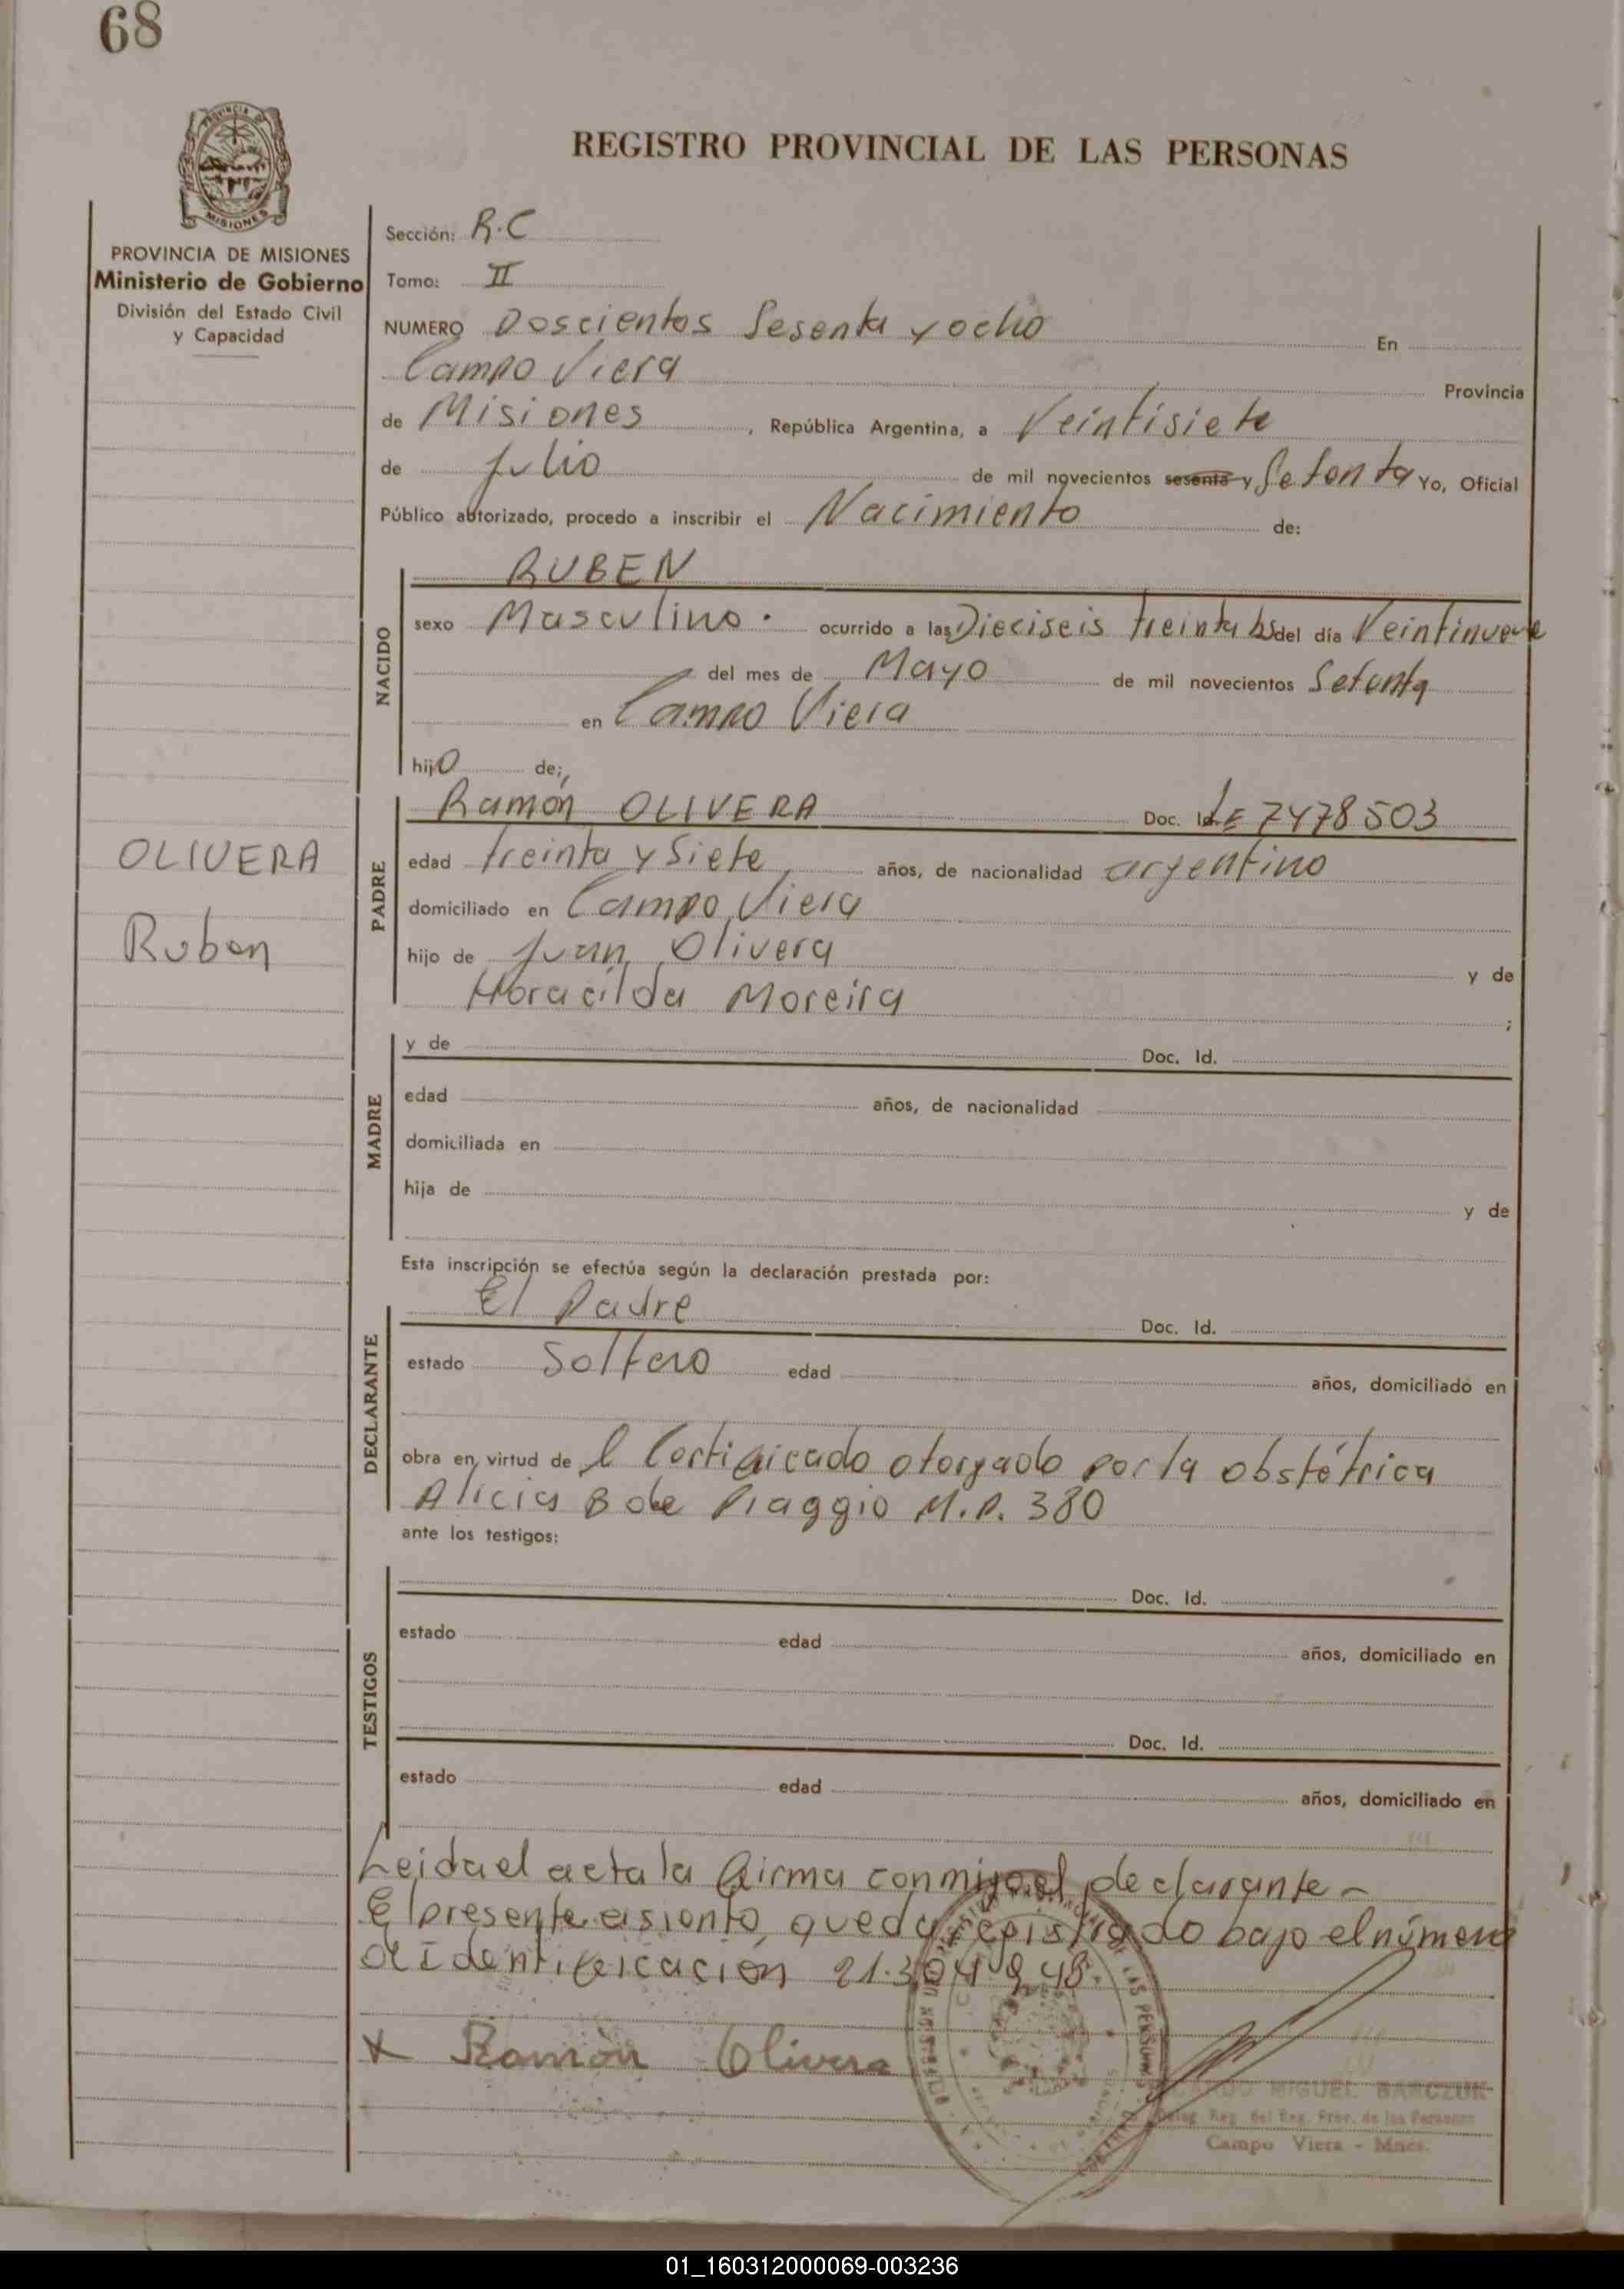 68
PROVINCIA DE MISIONES
MISIONES
PROVINCIA DE MISIONES
Ministerio de Gobierno
División del Estado Civil
y Capacidad
OLIVERA
Ruben
REGISTRO PROVINCIAL DE LAS PERSONAS
Sección: R.C
Tomo: II
NUMERO Doscientos Sesenta y ocho En
Campo Viera Provincia
de Misiones, República Argentina, a Veintisiete
de Julio de mil novecientos sesenta y Setenta Yo, Oficial
Público autorizado, procedo a inscribir el Nacimiento de:
NACIDO
RUBEN
sexo Masculino. ocurrido a las Dieciseis treinta hs del día Veintinueve
del mes de Mayo de mil novecientos Setenta
en Campo Viera
hijo de;
PADRE
Ramón OLIVERA Doc. Id. LE 7478503
edad treinta y Siete años, de nacionalidad argentino
domiciliado en Campo Viera
hijo de Juan Olivera y de
Horacilda Moreira ;
MADRE
y de Doc. Id.
edad años, de nacionalidad
domiciliada en
hija de y de
Esta inscripción se efectúa según la declaración prestada por:
DECLARANTE
El Padre Doc. Id.
estado Soltero edad años, domiciliado en
obra en virtud de l Certificado otorgado por la obstétrica
Alicia B de Piaggio M.P. 380
ante los testigos:
TESTIGOS
Doc. Id.
estado edad años, domiciliado en
Doc. Id.
estado edad años, domiciliado en
Leida el acta la firma conmigo el declarante -
El presente asiento queda registrado bajo el número
de identificación 21.304.948.
x Ramón Olivera
MIGUEL BARCZUK
Deleg Reg. del Reg. Prov. de las Personas
Campo Viera - Mnes.
01_160312000069-003236